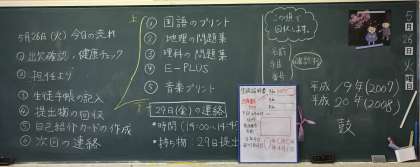 5月26日(火)今日の流れ
① 出欠確認,健康チェック
② 担任より
③ 生徒手帳の記入
④ 提出物の回収
⑤ 自己紹介カードの作成
⑥ 次回の連絡
上
① 国語のプリント
② 地理の問題集
③ 理科の問題集
④ E-PLUS
⑤ 音楽プリント
29日(金)の連絡
・時間(14:00~14:45
・持ち物 29日提出
この順で
回収します。
名前
確認
平成19年(2007)
平成20年(2008)
鼓
5月26日火曜日